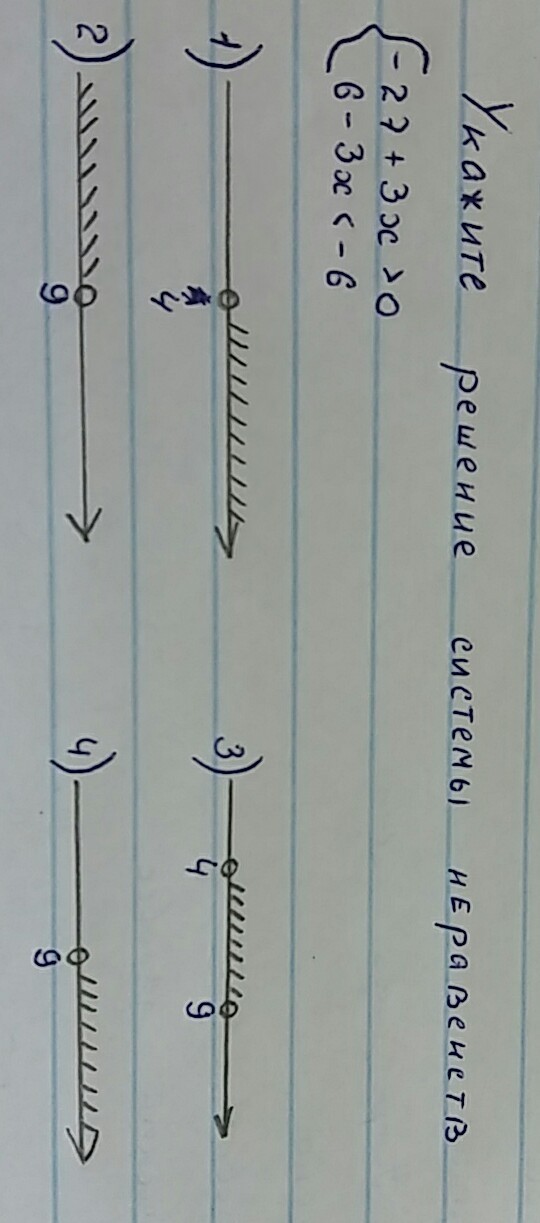 Укажите решение системы неравенств
{ -27 + 3x > 0
6 - 3x < -6
1) 4
3) 4 9
2) 9
4) 9